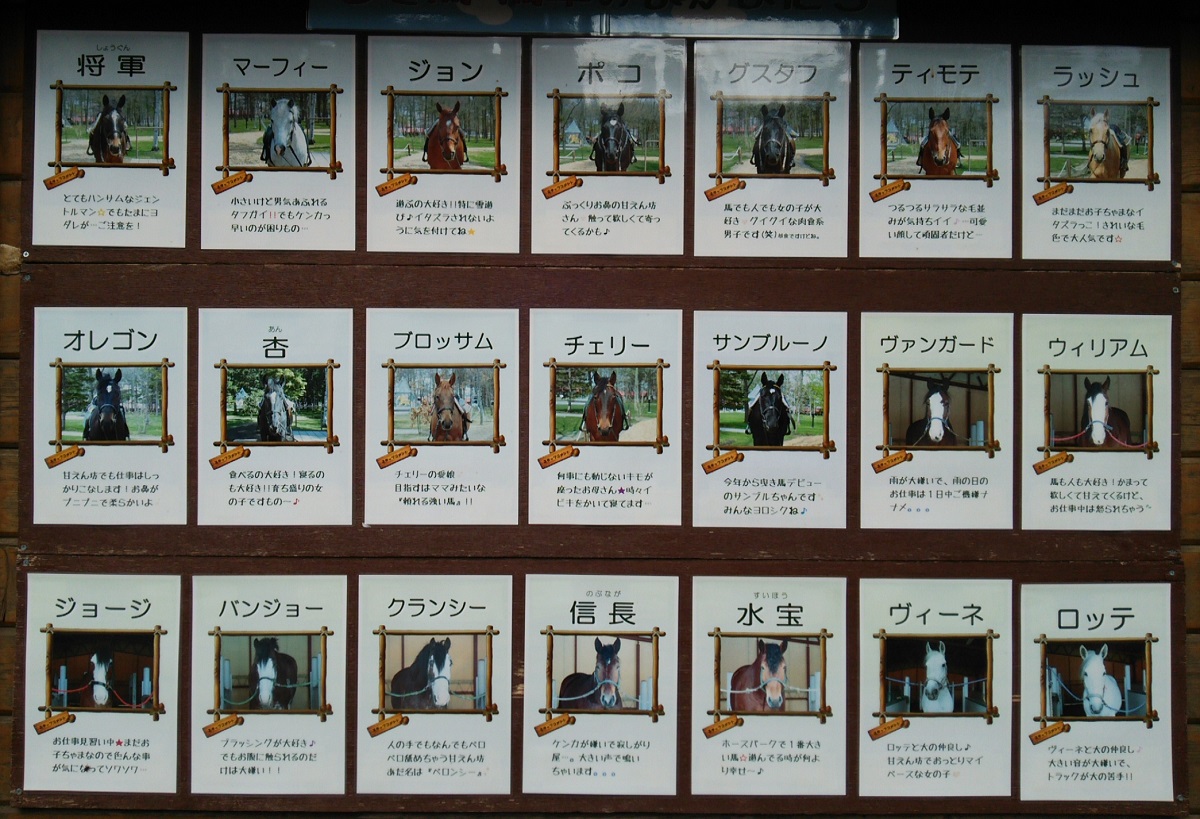 しょうぐん
将軍
とてもハンサムなジェン
トルマン☆でもたまにヨ
ダレが…ご注意を！
マーフィー
小さいけど男気あふれる
タフガイ!!でもケンカっ
早いのが困りもの…
ジョン
遊ぶの大好き!!特に雪遊
び♪イタズラされないよ
うに気を付けてね★
ポコ
ぷっくりお鼻の甘えん坊
さん 触って欲しくて寄っ
てくるかも♪
グスタフ
馬でも人でも女の子が大
好き グイグイな肉食系
男子です(笑)
ティモテ
つるつるサラサラな毛並
みが気持ちイイ♪可愛
い顔して頑固者だけど…
ラッシュ
まだまだお子ちゃまなイ
タズラっこ！きれいな毛
色で大人気です☆
オレゴン
甘えん坊でも仕事はしっ
かりこなします！お鼻が
プニプニで柔らかいよ
あん
杏
食べるの大好き！寝るの
も大好き!!育ち盛りの女
の子ですもの…♪
ブロッサム
チェリーの愛娘
目指すはママみたいな
『頼れる強い馬』!!
チェリー
何事にも動じないキモが
座ったお母さん★時々イ
ビキをかいて寝てます…
サンブルーノ
今年から曳き馬デビュー
のサンブルちゃんです
みんなヨロシクね♪
ヴァンガード
雨が大嫌いで、雨の日の
お仕事は１日中ご機嫌ナ
ナメ。。。
ウィリアム
馬も人も大好き！かまって
欲しくて甘えてくるけど、
お仕事中は怒られちゃう
ジョージ
お仕事見習い中★まだお
子ちゃまなので色んな事
が気になってソワソワ…
バンジョー
ブラッシングが大好き♪
でもお腹に触られるのだ
けは大嫌い！！
クランシー
人の手でもなんでもペロ
ペロ舐めちゃう甘えん坊
あだ名は『ペロンシー』
のぶなが
信長
ケンカが嫌いで寂しがり
屋…。大きい声で鳴い
ちゃいます。。。
すいほう
水宝
ホースパークで１番大き
い馬☆遊んでる時が何よ
り幸せ…♪
ヴィーネ
ロッテと大の仲良し♪
甘えん坊でおっとりマイ
ペースな女の子
ロッテ
ヴィーネと大の仲良し♪
大きい音が大嫌いで、
トラックが大の苦手!!